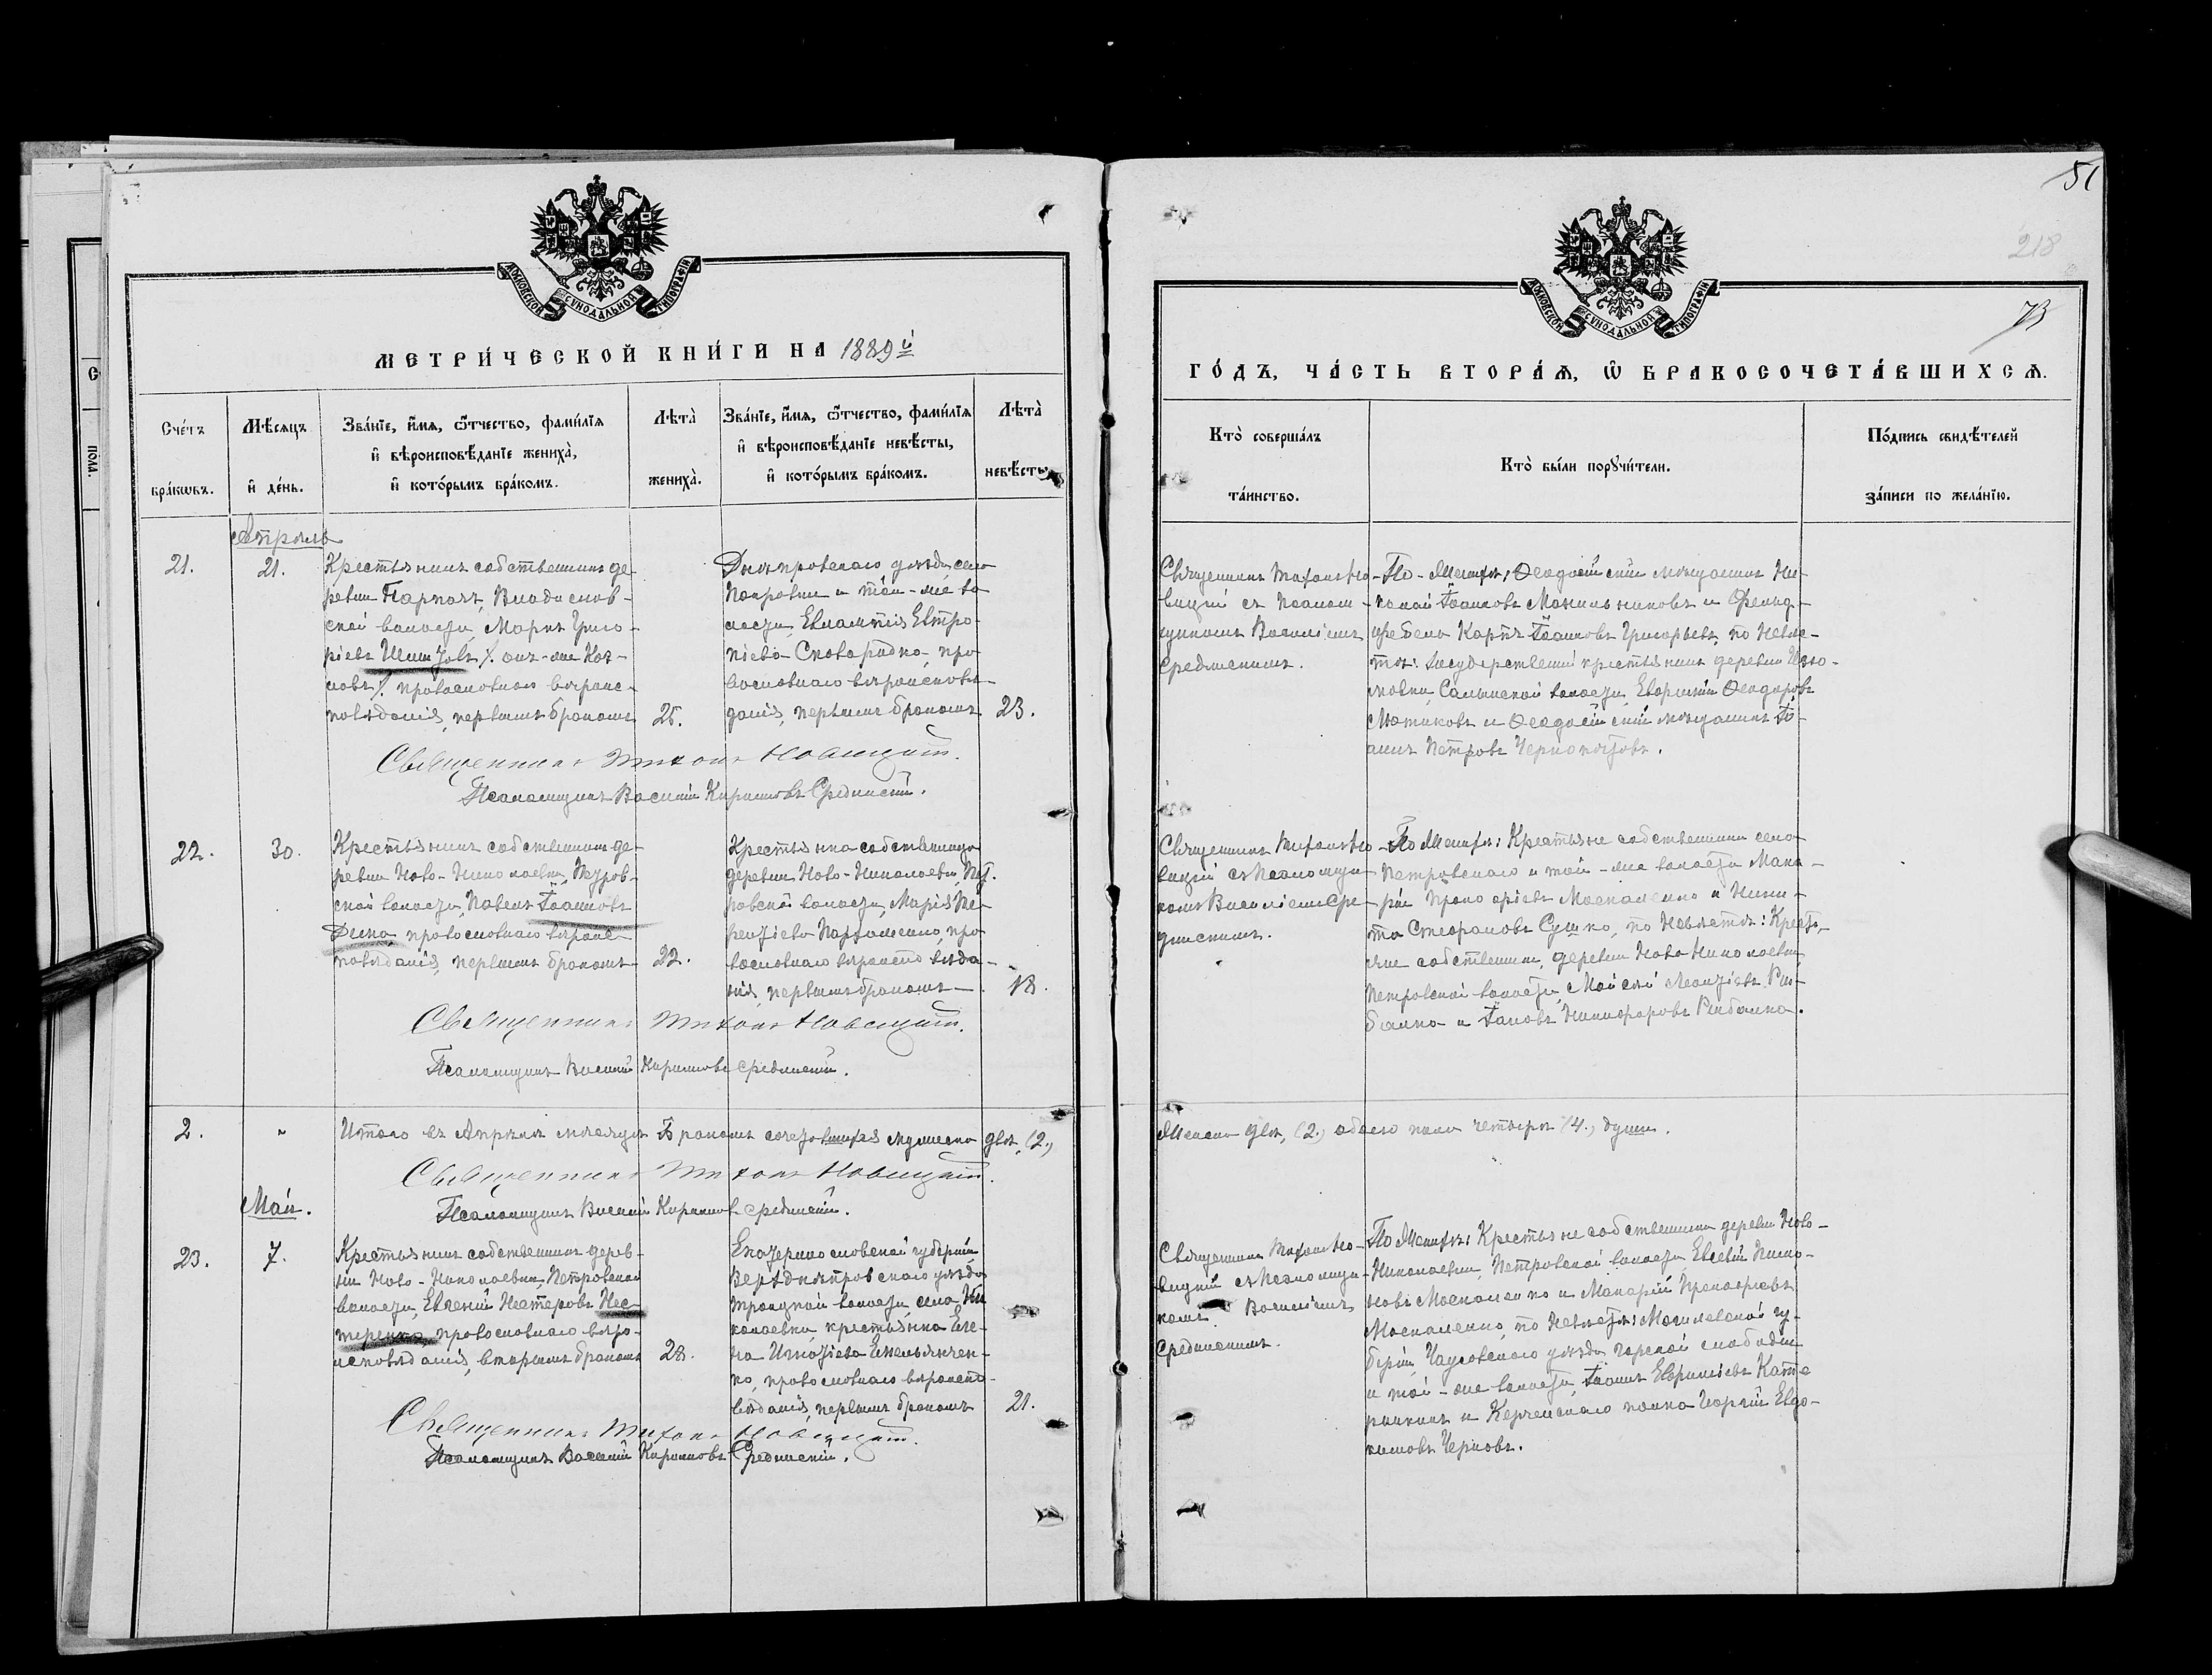 51
218
73
МОСКОВСКОЙ СѴНОДАЛЬНОЙ ТИПОГРАФІИ
МЕТРИ́ЧЕСКОЙ КНИ́ГИ НА 1889й
Сче́тъ бра́кωвъ.
Мѣ́сяцъ и де́нь.
Зва́нїе, и́мѧ, ѿтчество, фами́лїѧ
и вѣроисповѣ́данїе жениха̀,
и кото́рымъ бра́комъ.
Лѣта̀ жениха̀.
Зва́нїе, и́мѧ, ѿтчество, фами́лїѧ
и вѣроисповѣ́данїе невѣ́сты,
и кото́рымъ бра́комъ.
Лѣта̀ невѣ́сты
Апрель
21.
21.
Крестьянинъ собственникъ де
ревни Парпачъ, Владислав-
ской волости, Маркъ Григо-
ріевъ
онъ-же Коз-
ловъ/, православнаго вѣроис-
повѣданія, первымъ бракомъ
25.
Днѣпровскаго уѣзда село
Покровки и той-же во
лости, Евлампія Евтро-
піева Сковородко, пра
вославнаго вѣроисповѣ-
данія, первымъ бракомъ
23.
Священникъ Тихонъ Новицкій.
Псаломщикъ Василій Кириловъ Срединскій.
22.
30.
Крестьянинъ собственникъ де-
ревни Ново-Николаевки, Петров-
ской волости, Павелъ Іоанновъ
православнаго вѣроис-
повѣданія, первымъ бракомъ
22.
Крестьянка собственница
деревни Ново-Николаевки, Пет.
ровской волости, Марія
Пархоменко, пра
вославнаго вѣроисповѣда-
нія, первымъ бракомъ
18.
Священникъ Тихонъ Новицкій.
Псаломщикъ Василій Кириловъ Срединскій.
2.
"
Итого въ Апрѣлѣ мѣсяцѣ Бракомъ сочетавшихся мужеска двѣ, (2.)
Священникъ Тихонъ Новицкій.
Псаломщикъ Василій Кириловъ Срединскій.
Май.
23.
7.
Крестьянинъ собственникъ дерев-
ни Ново-Николаевки, Петровской
волости, Евгеній Нестеровъ Нес-
теренко, православнаго вѣро-
исповѣданія, вторымъ бракомъ
28.
Екатеринославской губерніи,
Верхднѣпровскаго уѣзда
Троицкой волости села Ни
колаевки, крестьянка Еле-
на Игнатіева Емельянчен-
ко, православнаго вѣроиспо-
вѣданія, первымъ бракомъ
21.
Священникъ Тихонъ Новицкій.
Псаломщикъ Василій Кириловъ Срединскій.
МОСКОВСКОЙ СѴНОДАЛЬНОЙ ТИПОГРАФІИ
ГО́ДЪ, ЧА́СТЬ ВТОРА́Ѧ, Ѡ БРАКОСОЧЕТА́ВШИХСѦ.
Кто̀ соверша́лъ та́инство.
Кто̀ бы́ли порꙋчи́тели.
По́дпись свидѣ́телей за́писи по жела́нїю.
Священникъ Тихонъ Но-
вицкій съ псалом-
щикомъ Василіемъ
Срединскимъ.
По-Женихѣ: Ѳеодосійскій мѣщанинъ Ни-
колай Іоанновъ и Фельд-
Карпъ Іоанновъ Григорьевъ, по Невѣс-
тѣ: Государственный крестьянинъ деревни
волости, Ѳеодоровъ
и Ѳеодосійскій мѣщанинъ Іо-
аннъ Петровъ
Священникъ Тихонъ Но-
вицкій съ Псаломщи-
комъ Василіемъ Сре-
динскимъ.
По Женихѣ: Крестьяне собственники села
Петровскаго и той-же волости Мака-
рій Прокофіевъ Москаленко и Ники-
та Стефановъ Сушко, по Невѣстѣ: Крест-
яне собственники, деревни Ново Николаевки
Петровской волости, Моисей Леонтіевъ Ры-
балко и Іаковъ Никифоровъ Рыбалко.
Женска двѣ, (2.) обоего пола четыре (4.) души.
Священникъ Тихонъ Но-
вицкій съ Псаломщи-
комъ Василіемъ
Срединскимъ.
По Женихѣ: Крестьяне собственники деревни Ново-
Николаевки, Петровской волости, Евсевій
Москаленко и Макарій Прокофіевъ
Москаленко, по Невѣстѣ: Могилевской гу-
берніи, Чаусовскаго уѣзда Горской слободы
и той-же волости, Іоаннъ Ефиміевъ
и Керченскаго полка Евдо-
кимовъ Черновъ.